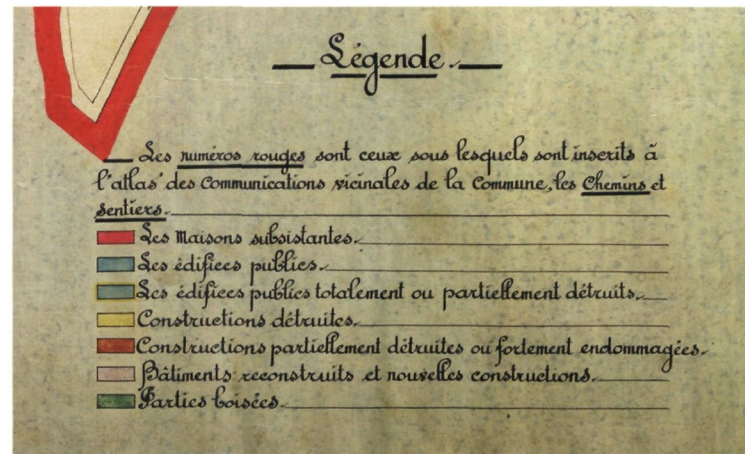 Légende.
Les numéros rouges sont ceux sous lesquels sont inscrits à
l'atlas des Communications vicinales de la Commune, les Chemins et
sentiers.
Les Maisons subsistantes.
Les édifices publics.
Les édifices publics totalement ou partiellement détruits.
Constructions détruites.
Constructions partiellement détruites ou fortement endommagées.
Bâtiments reconstruits et nouvelles constructions.
Parties boisées.